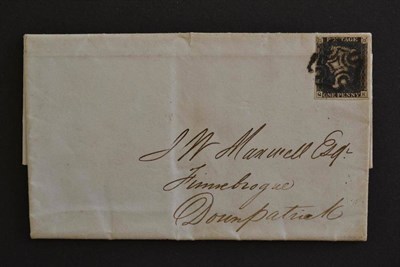 POSTAGE
ONE PENNY
J W Maxwell Esqr
Finnebrogue
Downpatrick